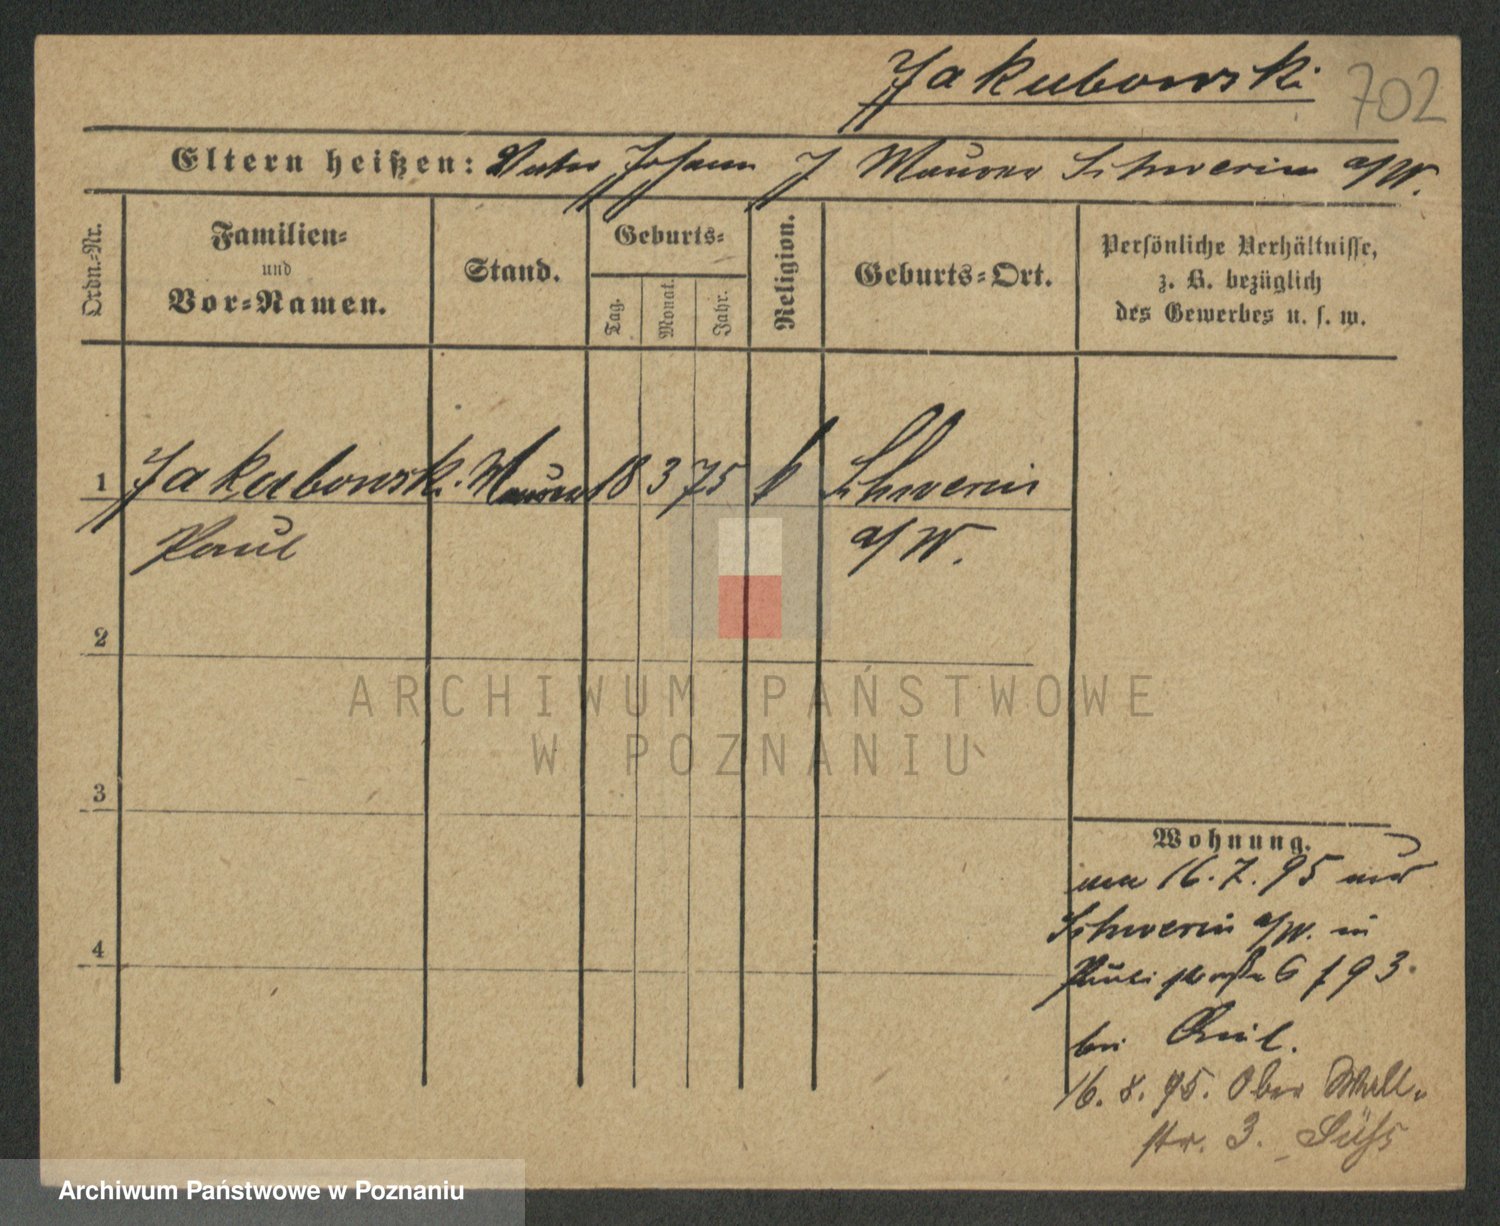 Jakubowski
702
Eltern heißen: Vater Johann J Maurer Schwerin a/W.
Ordn.-Nr.
Familien-
und
Vor-Namen.
Stand.
Geburts-
Tag.
Monat.
Jahr.
Religion.
Geburts-Ort.
Persönliche Verhältnisse,
z. B. bezüglich
des Gewerbes u. s. w.
1 Jakubowski Maurer 18 3 75 k Schwerin
Paul a/W.
2
3
4
Wohnung.
16. 7. 95
Schwerin a/W. in
6
bei
16. 8. 95. Ober Wall-
str. 3. Süß
ARCHIWUM PAŃSTWOWE
W POZNANIU
Archiwum Państwowe w Poznaniu